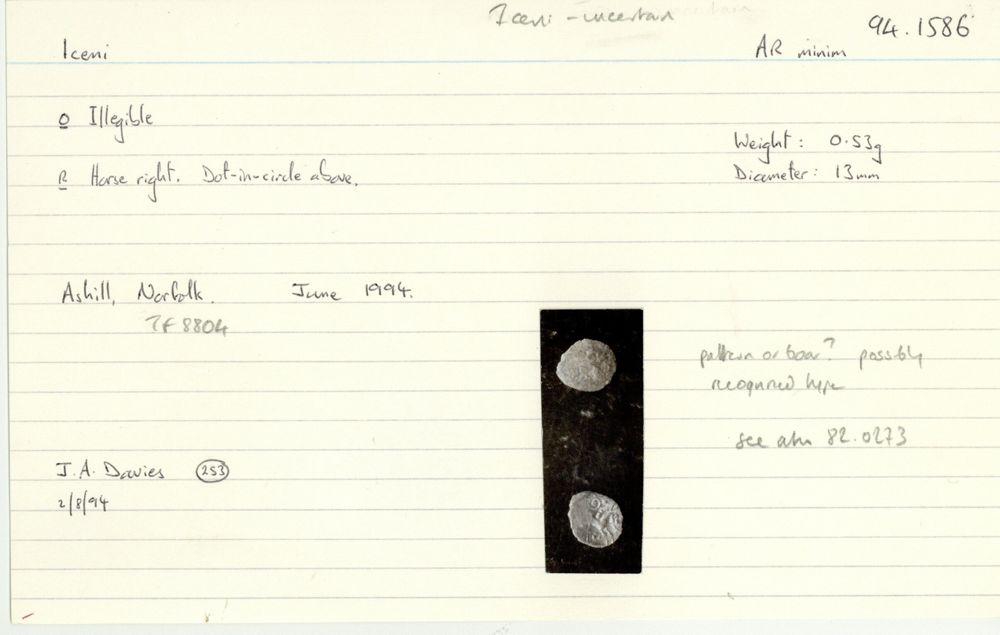 Iceni - uncertain
94.1586
Iceni
AR minim
O Illegible
Weight: 0.53g
R Horse right. Dot-in-circle above.
Diameter: 13mm
Ashill, Norfolk. June 1994.
TF 8804
pattern or boar? possibly
recognised type
see also 82.0273
J.A. Davies 253
2/8/94